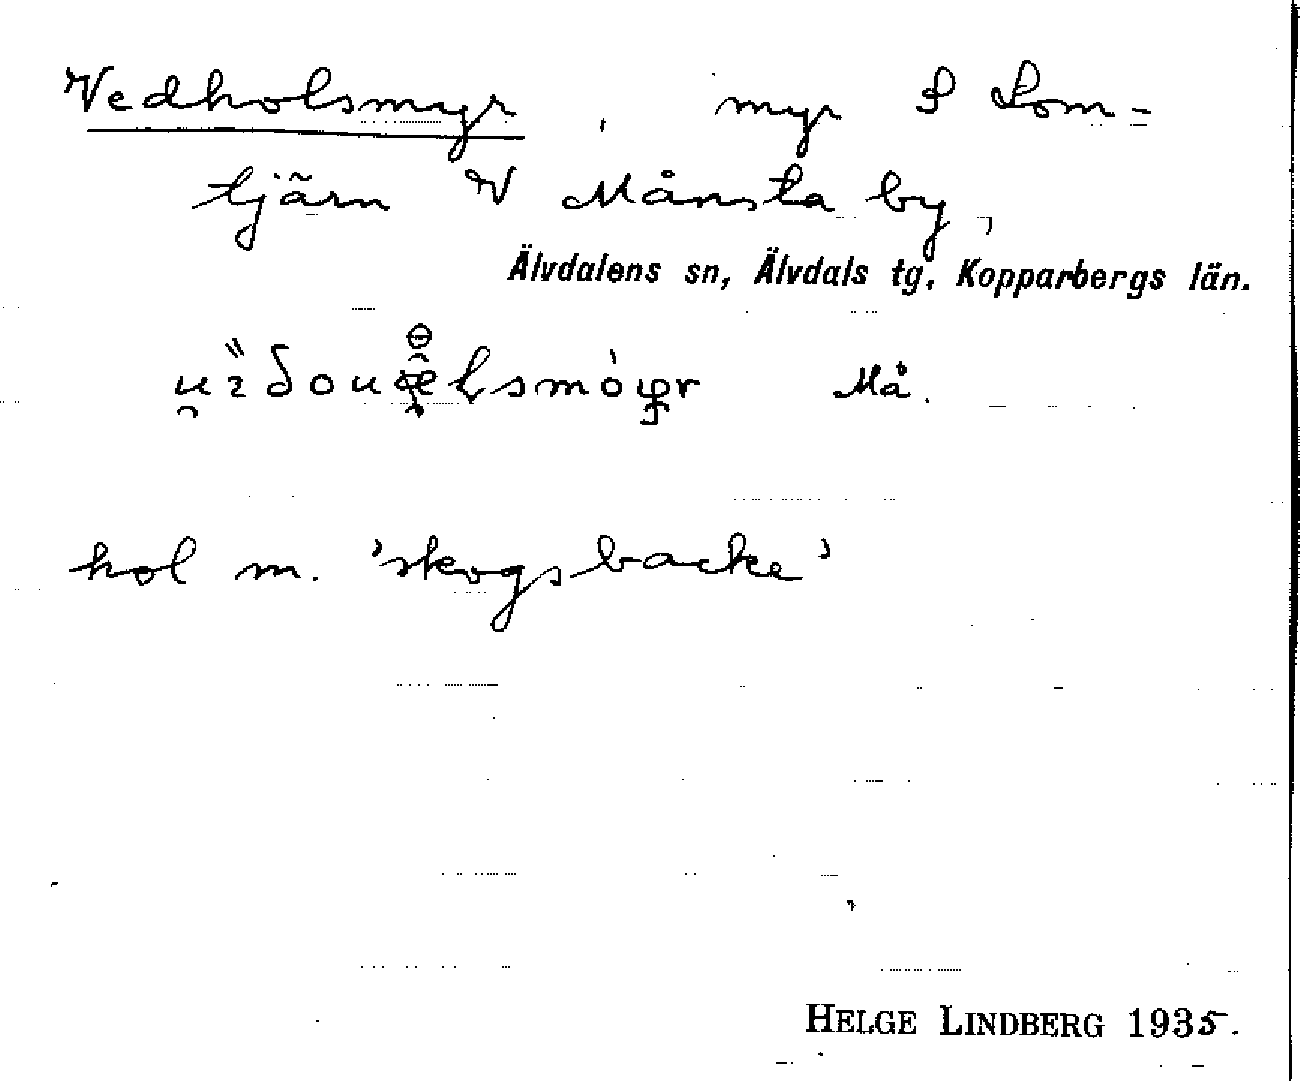 Vedholsmyr, myr S Lom-
tjärn V Månsta by,
Älvdalens sn, Älvdals tg, Kopparbergs län.
Må.
hol m. 'skogsbacke'
HELGE LINDBERG 1935.